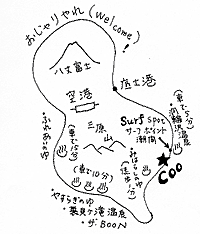 おじゃりやれ(Welcome!)
八丈富士
空港
底土港
三原山
Surf spot
サーフポイント
潮間
(車で5分)
・洞輪沢温泉
Coo
ふれあいのゆ
(車で15分)
(車で10分)
みはらしの湯
(徒歩1分)
・やすらぎのゆ
・裏見ヶ滝温泉
・ザ・BOON